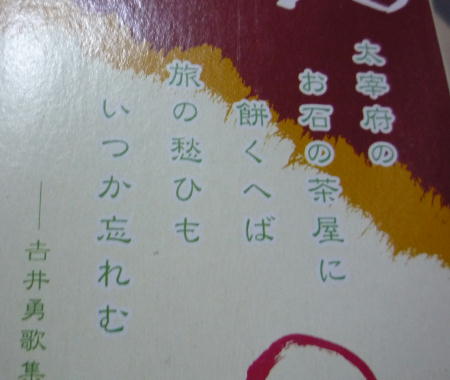 太宰府の
お石の茶屋に
餅くへば
旅の愁ひも
いつか忘れむ
――吉井勇歌集